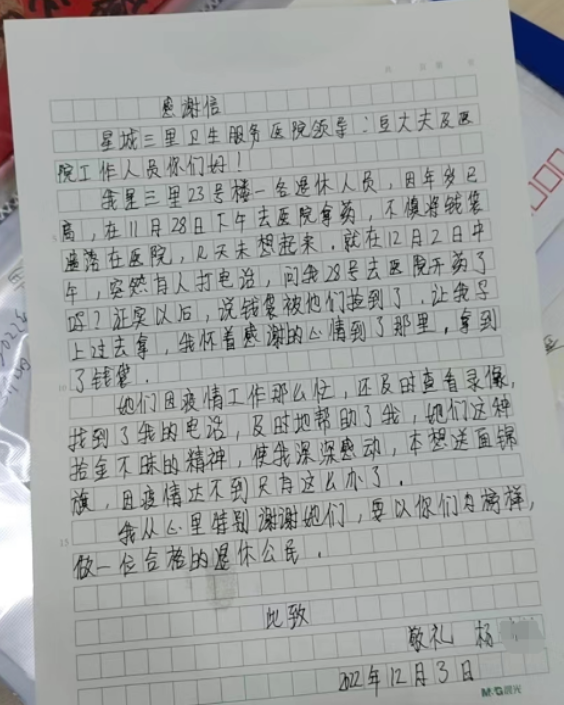 感谢信
星城三里卫生服务医院领导：豆大夫及医
院工作人员你们好！
我是三里23号楼一名退休人员，因年岁已
高，在11月28日下午去医院拿药，不慎将钱袋
遗落在医院，几天未想起来．就在12月2日中
午，突然有人打电话，问我28号去医院开药了
吗？证实以后，说钱袋被他们捡到了．让我马
上过去拿，我怀着感谢的心情到了那里，拿到
了钱袋．
她们因疫情工作那么忙，还及时查看录像，
找到了我的电话，及时地帮助了我，她们这种
拾金不昧的精神，使我深深感动，本想送面锦
旗，因疫情达不到只有这么办了．
我从心里特别谢谢她们，要以你们为榜样，
做一位合格的退休公民．
此致
敬礼 杨
2022年12月3日
M&G晨光